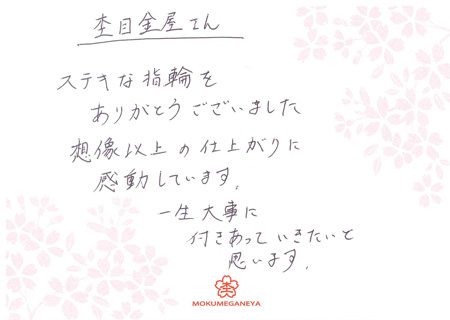 杢目金屋さん
ステキな指輪を
ありがとうございました
想像以上の仕上がりに
感動しています。
一生大事に
付きあっていきたいと
思います。
MOKUMEGANEYA